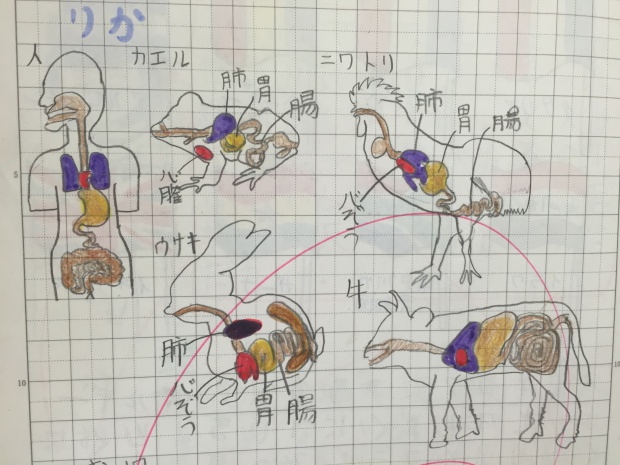 りか
人
カエル
肺
胃
腸
心臓
ニワトリ
肺
胃
腸
心ぞう
ウサキ
肺
心ぞう
胃
腸
牛
5
10